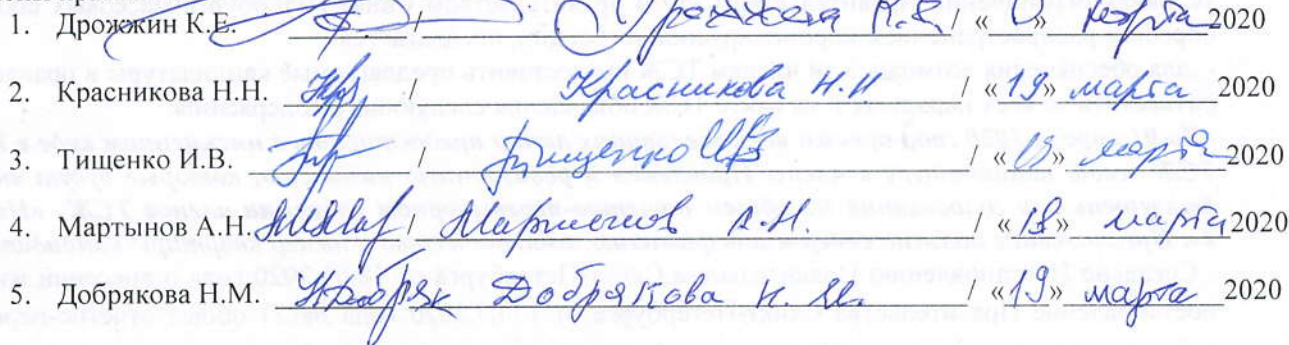 1. Дрожжин К.Е. / Дрожжин К.Е. / « » марта 2020
2. Красникова Н.Н. / Красникова Н.Н / «19» марта 2020
3. Тищенко И.В. / Тищенко И В / « » марта 2020
4. Мартынов А.Н. / Мартынов А.Н. / «19» марта 2020
5. Добрякова Н.М. Добрякова Н.М. / «19» марта 2020